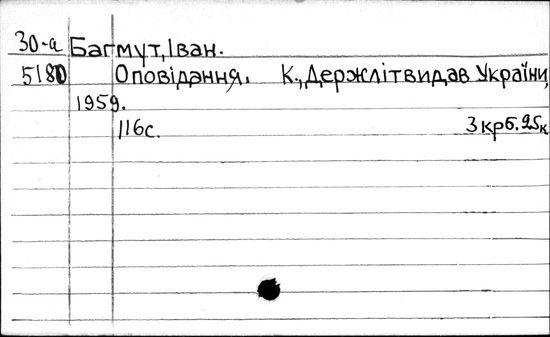 30-а Багмут, Іван.
5180 Оповідання. К., Держлітвидав України,
1959.
116с. 3 крб. 25к